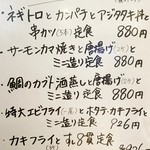 ・ネギトロとカンパチとアジタタキ丼と
串カツ(5本)定食 880円
・サーモンカマ焼きと唐揚げ(2ケ)と
ミニ造り定食 880円
・鯛のカブト酒蒸しと唐揚げ(2ケ)と
ミニ造り定食 880円
・特大エビフライ(1尾)とホタテ・カキフライと
ミニ造り定食 926円
・カキフライとすし8貫定食